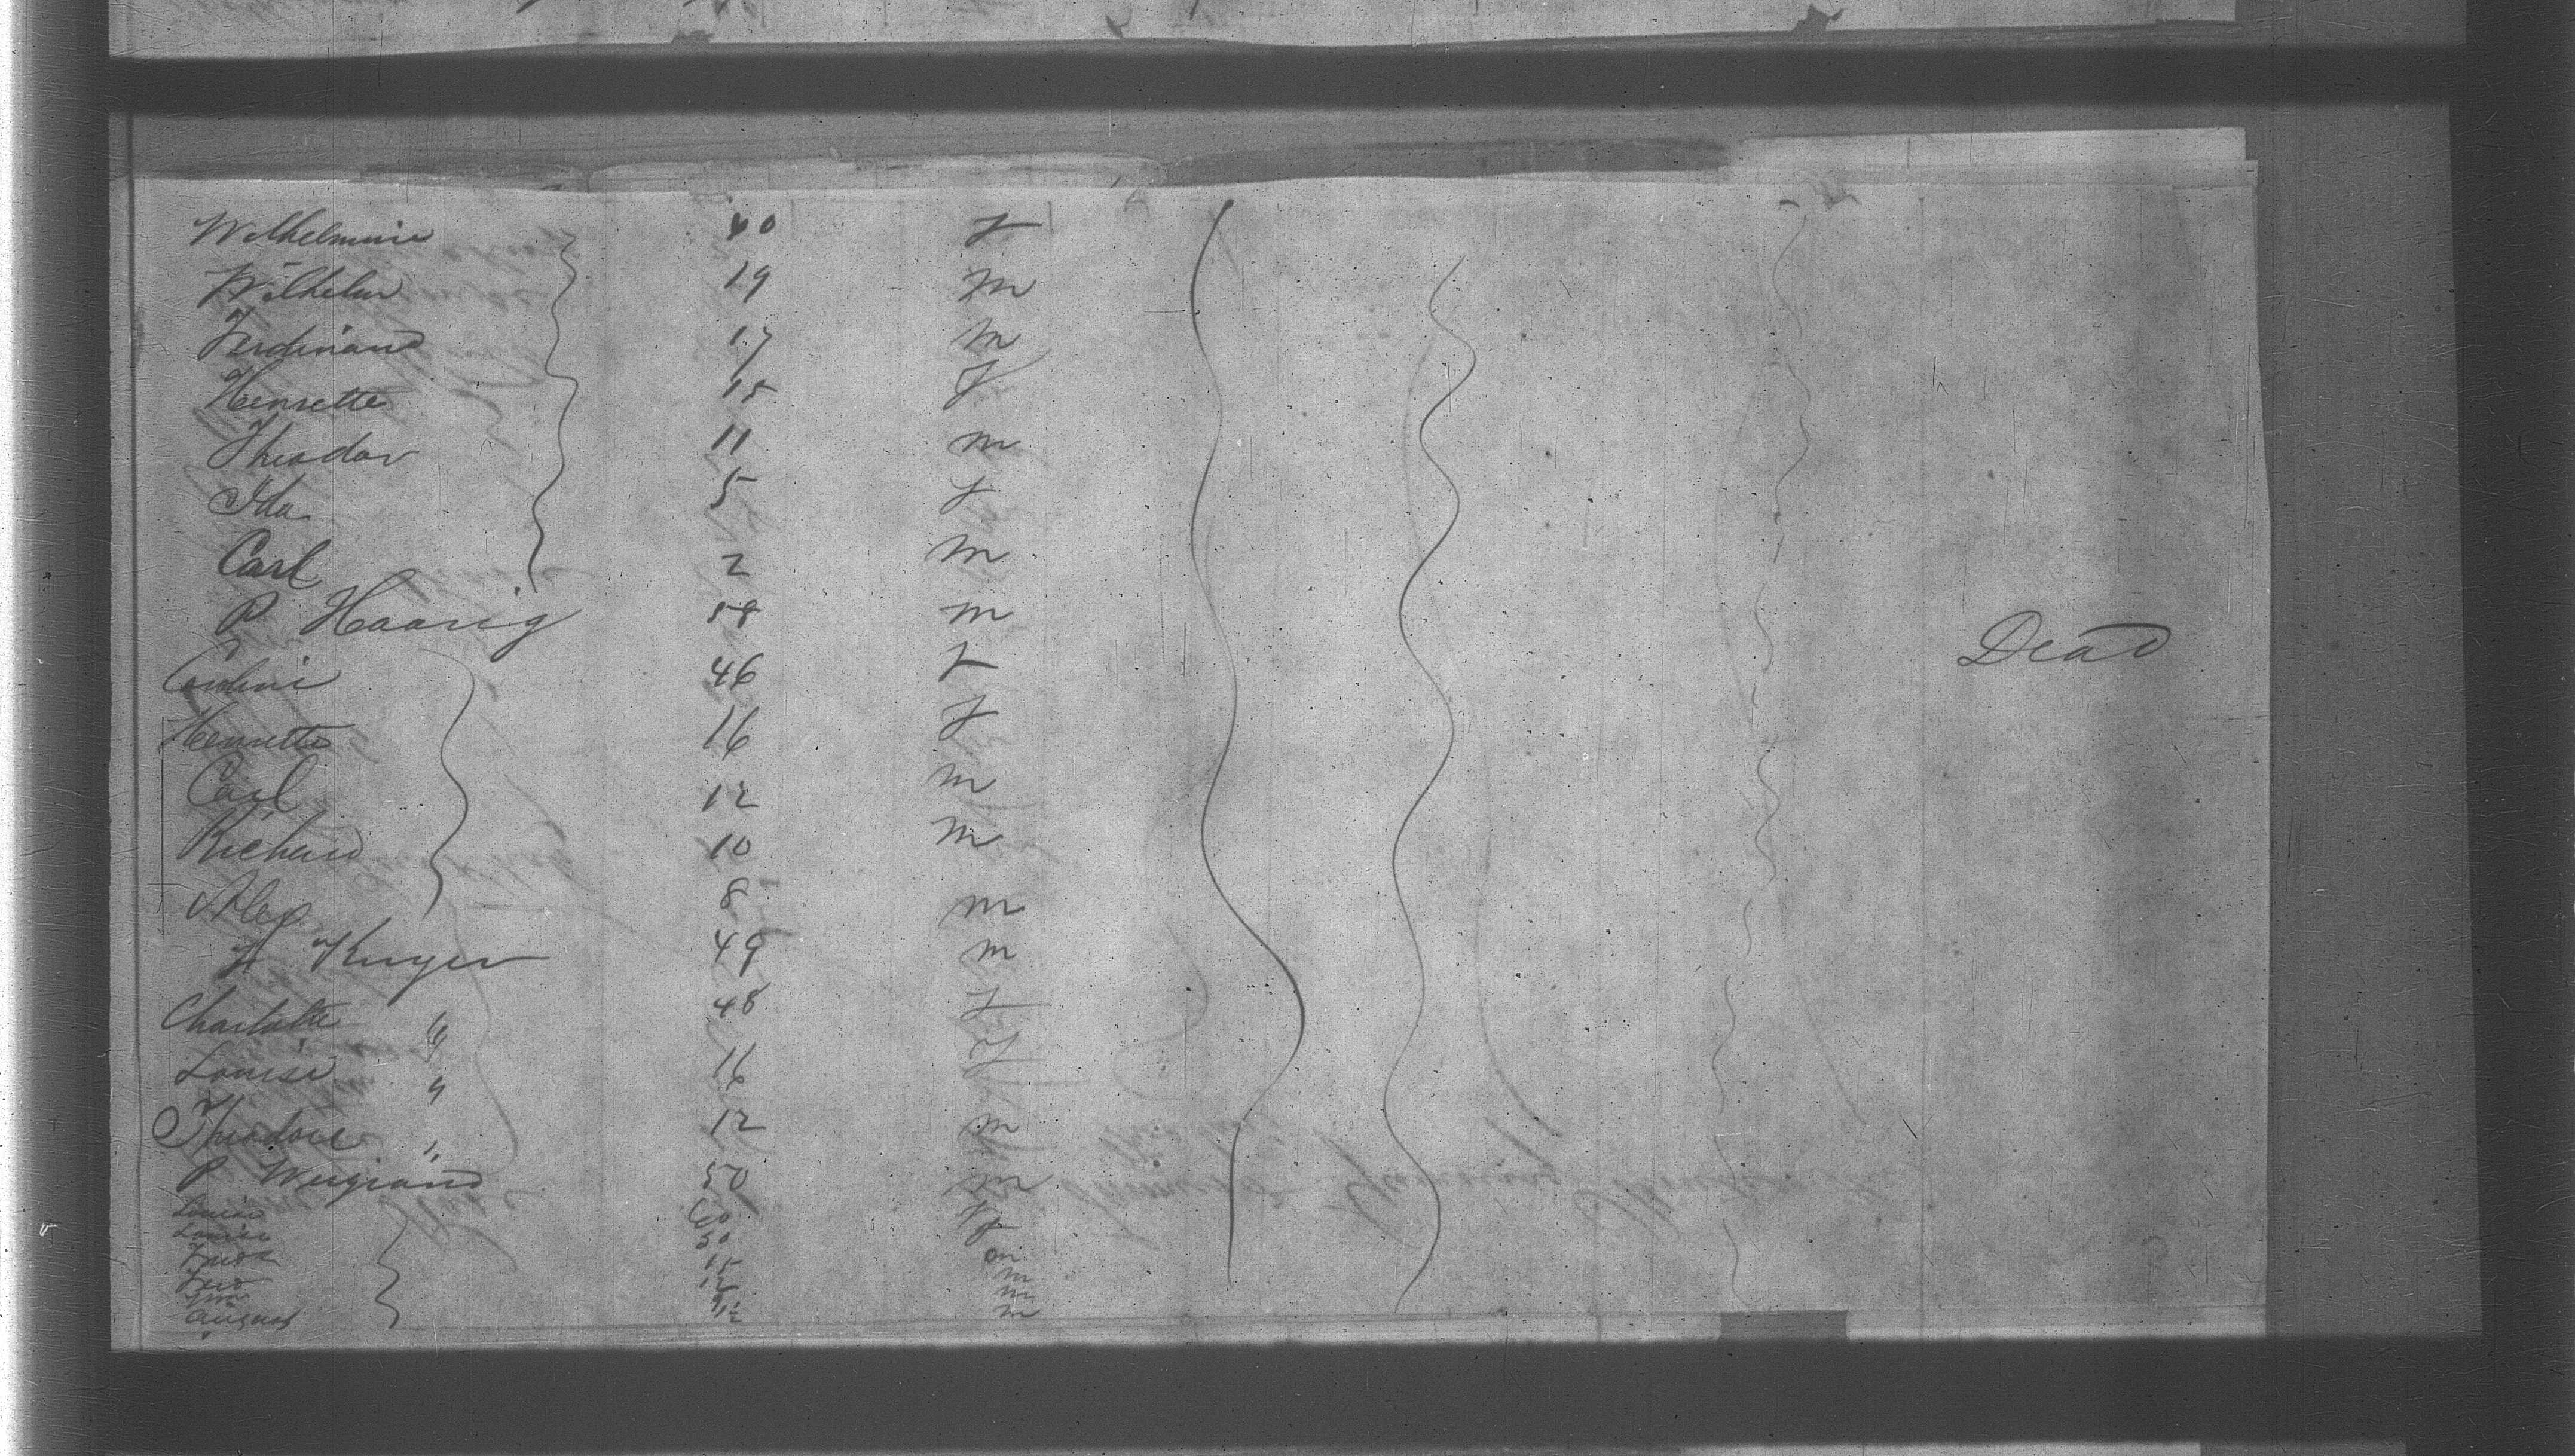 Wilhelmine 40 f
Wilhelm 19 m
Ferdinand 17 m
Henrette 15 f
Theodor 11 m
Ida 5 f
Carl 2 m
P Haarig 58 m Dead
Carolini 46 f
Henrette 16 f
Carl 12 m
Richard 10 m
Alex 8 m
Kruger 49 m
Charlotte " 48 f
Louise " 16 f
Theodore " 12 m
P Weigrand 50 m
Louise 60 f
Louise 30 f
m
m
m
August m